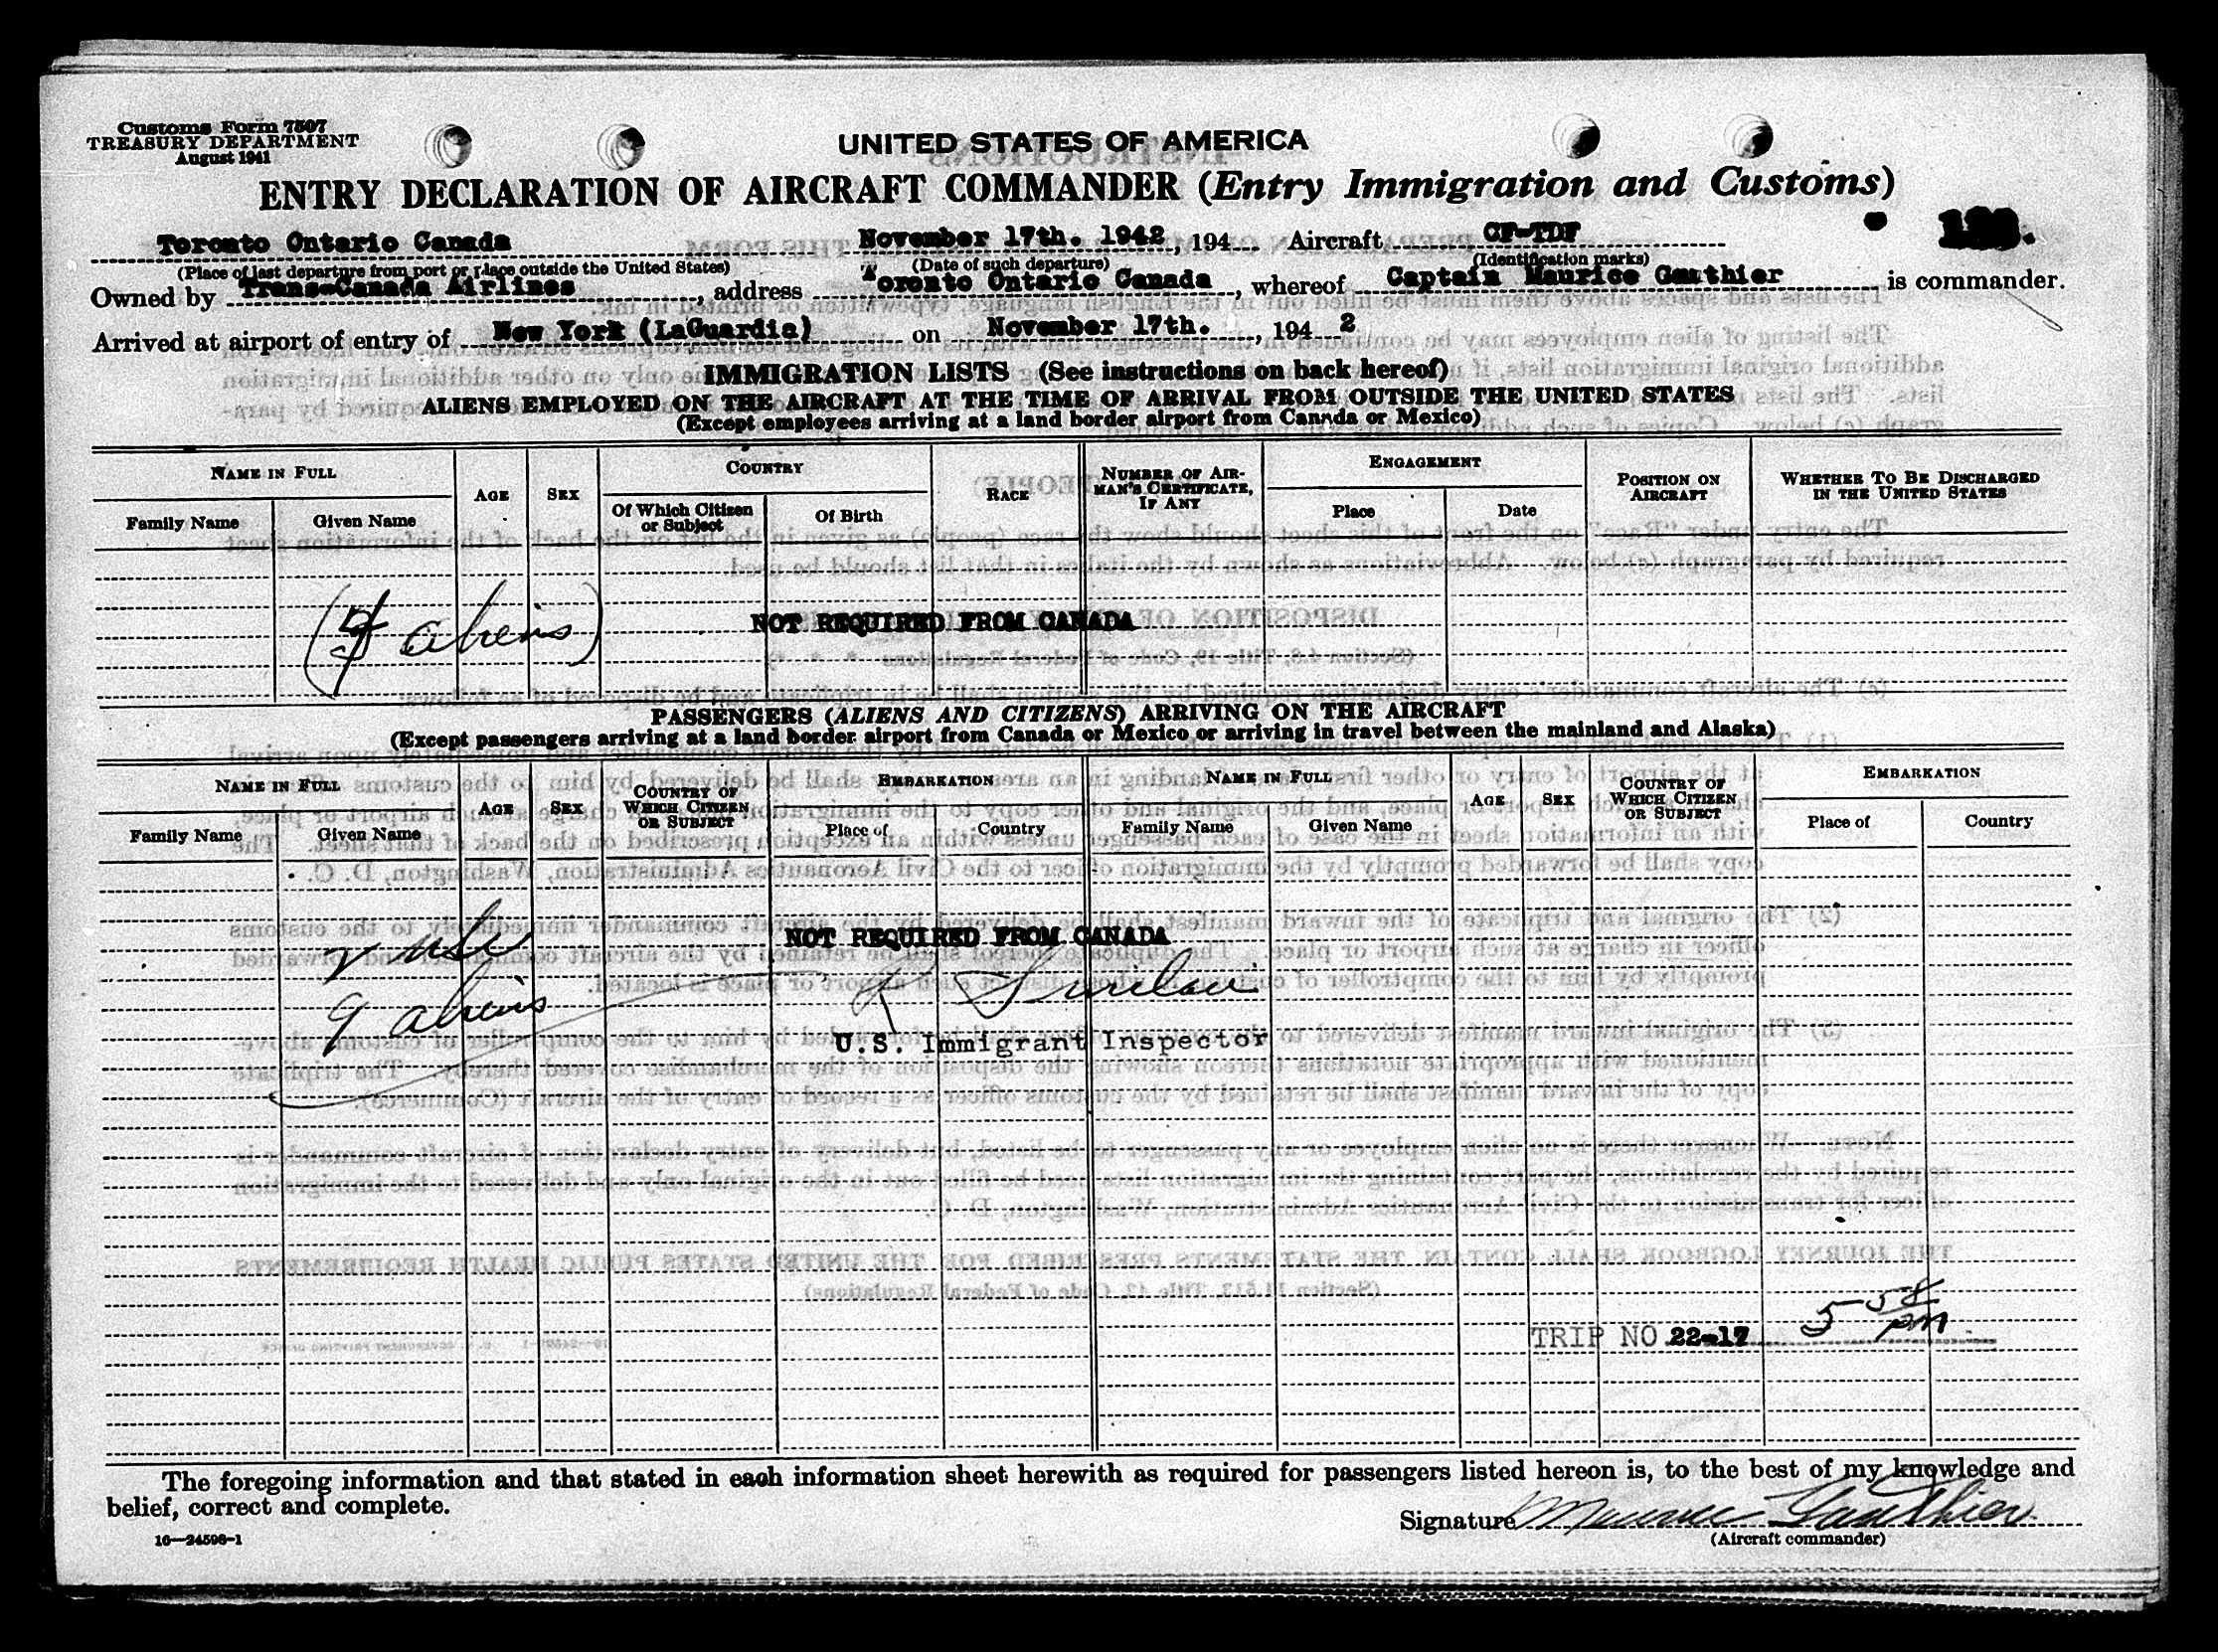 Customs Form 7507
TREASURY DEPARTMENT
August 1941
UNITED STATES OF AMERICA
ENTRY DECLARATION OF AIRCRAFT COMMANDER (Entry Immigration and Customs)
Toronto Ontario Canada November 17th. 1942, 194 Aircraft CF-TDF
(Place of last departure from port or place outside the United States) (Date of such departure) (Identification marks)
Owned by Trans-Canada Airlines, address Toronto Ontario Canada, whereof Captain Maurice Gauthier is commander.
Arrived at airport of entry of New York (LaGuardia) on November 17th., 194 2
IMMIGRATION LISTS (See instructions on back hereof)
ALIENS EMPLOYED ON THE AIRCRAFT AT THE TIME OF ARRIVAL FROM OUTSIDE THE UNITED STATES
(Except employees arriving at a land border airport from Canada or Mexico)
NAME IN FULL AGE SEX COUNTRY RACE NUMBER OF AIRMAN'S CERTIFICATE, IF ANY ENGAGEMENT POSITION ON AIRCRAFT WHETHER TO BE DISCHARGED IN THE UNITED STATES
Family Name Given Name Of Which Citizen or Subject Of Birth Place Date
( aliens)
NOT REQUIRED FROM CANADA
PASSENGERS (ALIENS AND CITIZENS) ARRIVING ON THE AIRCRAFT
(Except passengers arriving at a land border airport from Canada or Mexico or arriving in travel between the mainland and Alaska)
NAME IN FULL AGE SEX COUNTRY OF WHICH CITIZEN OR SUBJECT EMBARKATION NAME IN FULL AGE SEX COUNTRY OF WHICH CITIZEN OR SUBJECT EMBARKATION
Family Name Given Name Place of Country Family Name Given Name Place of Country
NOT REQUIRED FROM CANADA
9 aliens
U.S. Immigrant Inspector
TRIP NO 22-17 5 58 pm
The foregoing information and that stated in each information sheet herewith as required for passengers listed hereon is, to the best of my knowledge and
belief, correct and complete.
Signature Maurice Gauthier
(Aircraft commander)
16—24596-1